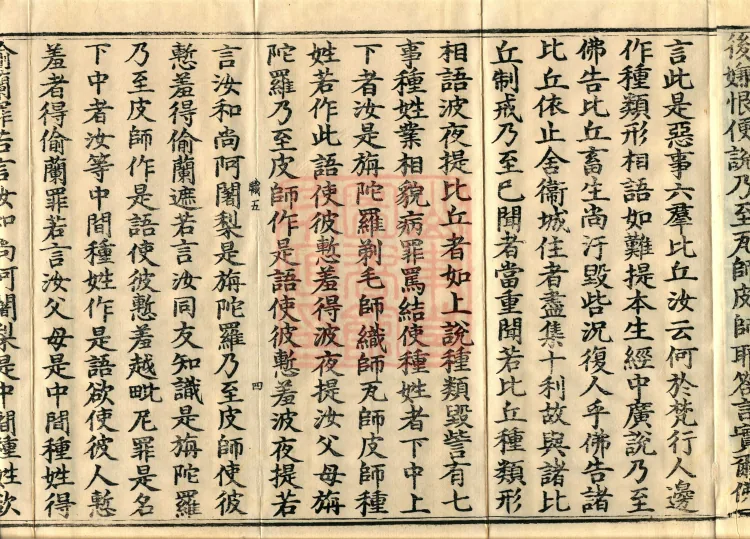 後嫌恨便說乃至瓦師皮師耶答言實爾佛
言此是惡事六羣比丘汝云何於梵行人邊
作種類形相語如難提本生經中廣說乃至
佛告比丘畜生尚汙毀呰況復人乎佛告諸
比丘依止舍衞城住者盡集十利故與諸比
丘制戒乃至已聞者當重聞若比丘種類形
相語波夜提比丘者如上說種類毀呰有七
事種姓業相貌病罪罵結使種姓者下中上
下者汝是旃陀羅剃毛師織師瓦師皮師種
姓若作此語使彼慙羞得波夜提汝父母旃
陀羅乃至皮師作是語使彼慙羞波夜提若
職五 四
言汝和尚阿闍梨是旃陀羅乃至皮師使彼
慙羞得偷蘭遮若言汝同友知識是旃陀羅
乃至皮師作是語使彼慙羞越毗尼罪是名
下中者汝等中間種姓作是語欲使彼人慙
羞者得偷蘭罪若言汝父母是中間種姓得
偷蘭罪若言汝和尚阿闍梨是中間種姓欲